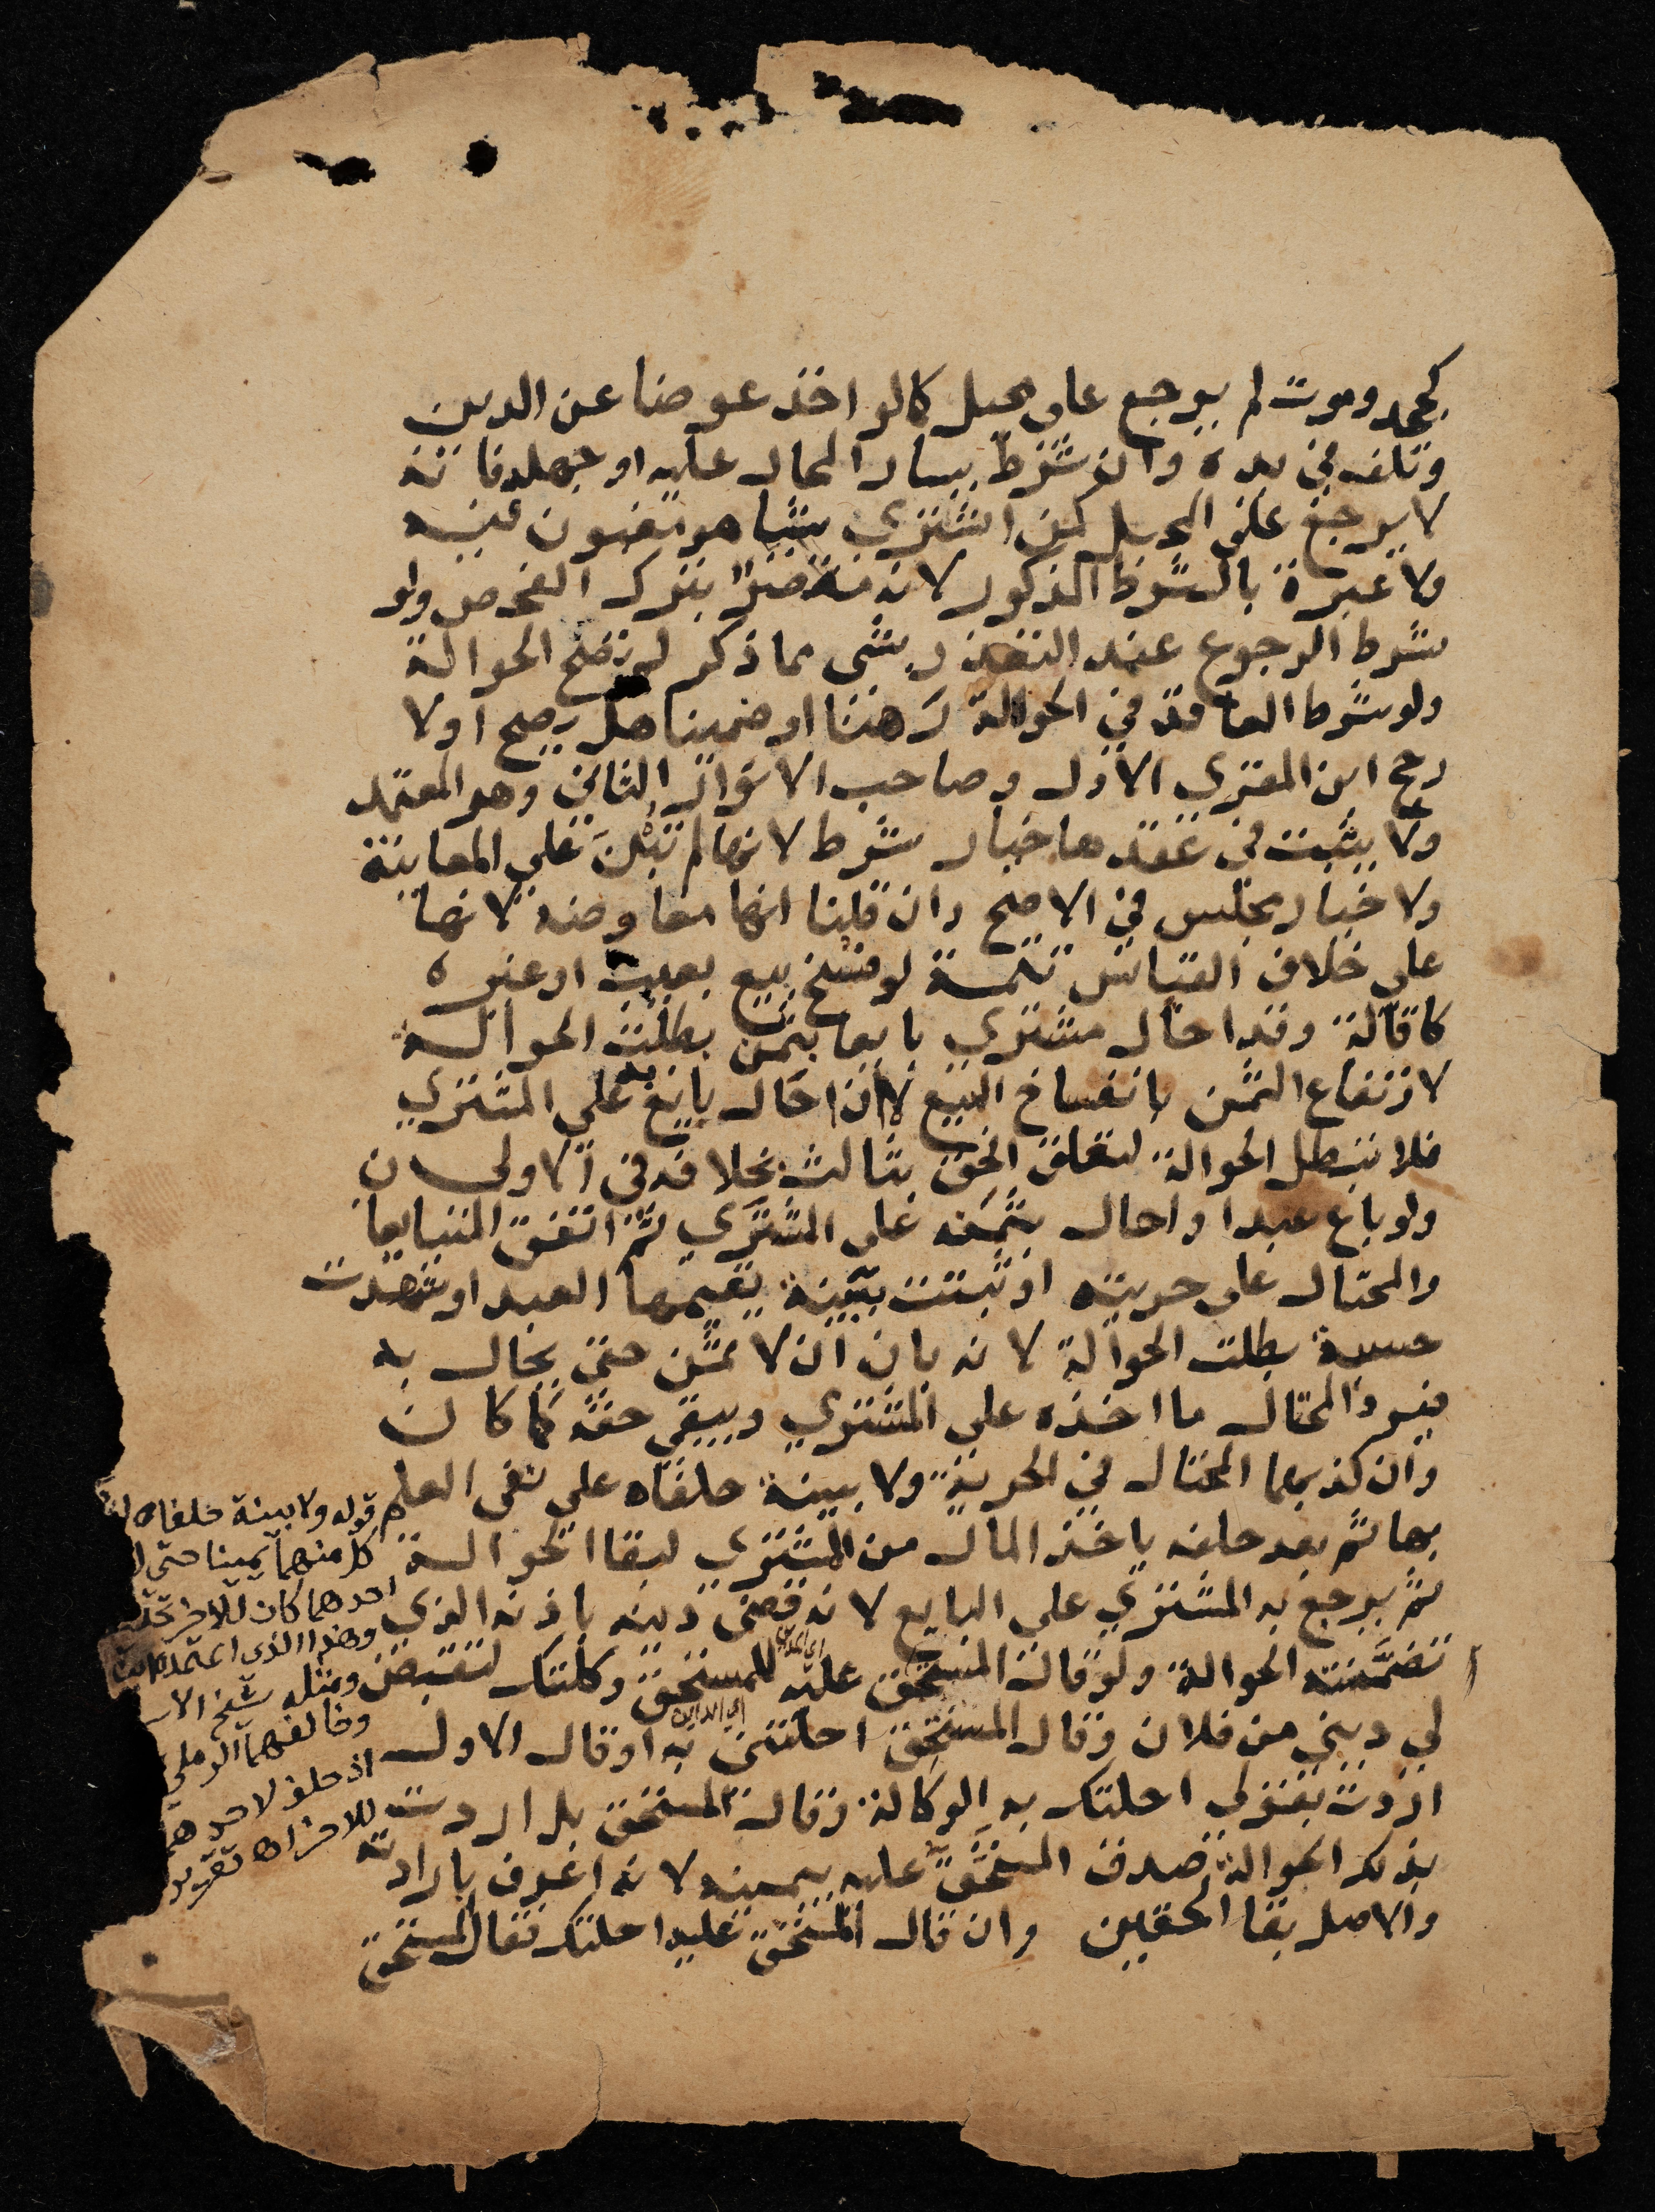 كجحد وموت لم يرجع على محيل كما لو اخذ عوضا عن الدين
وتلف في يده وان شرط يسار المحال عليه او جهله فانه
لا يرجع على المحيل كمن اشترى شيا هو مغبون فيه
ولا عبرة بالشرط المذكور لانه مقصر بترك الفحص ولو
شرط الرجوع عند التعذر بشي مما ذكر لم تصح الحوالة
ولو شرط العاقد في الحوالة رهنا او ضمينا هل يصح او لا
رجح ابن المقري الاول وصاحب الانوار الثاني وهو المعتمد
ولا يثبت في عقدها خيار شرط لانها لم تبن على المعاينة
ولا خيار مجلس في الاصح وان قلنا انها معاوضة لانها
على خلاف القياس تتمة لو فسخ بيع بعيب او غيره
كاقالة وقد احال مشتري بايعا بثمن بطلت الحوالة
لارتفاع الثمن بانفساخ البيع لا ان احال بايع به على المشتري
فلا تبطل الحوالة لتعلق الحق بثالث بخلافه في الاولى
ولو باع عبدا واحال بثمنه على المشتري ثم اتفق المتبايعان
والمحتال على حريته او ثبتت ببينة يقيمها العبد او شهدت
حسبة بطلت الحوالة لانه بان ان لا ثمن حتى يحال به
فيرد المحتال ما اخذه على المشتري ويبقى حقه كما كان
وان كذبهما المحتال في الحرية ولا بينة حلفاه على نفي العلم
بها ثم بعد حلفه ياخذ المال من المشتري لبقا الحوالة
ثم يرجع به المشتري على البايع لانه قضى دينه باذنه الذي
تضمنته الحوالة ولو قال المستحق عليه للمستحق وكلتك لتقبض
اي المدين
لي ديني من فلان وقال المستحق احلتني به او قال الاول
اي الداين
اردت بقولي احلتك به الوكالة وقال المستحق بل اردت
بذلك الحوالة صدق المستحق عليه بيمينه لانه اعرف بارادته
والاصل بقا الحقين وان قال المستحق عليه احلتك فقال المستحق
قوله ولا بينة حلفاه
كل منهما يمينا حتى
احدهما كان للاخر
وهذا الذي اعتمده
ومثله شيخ
وخالفهما الرملي
اذ حلف لاحدهما
للاخر اه تقرير